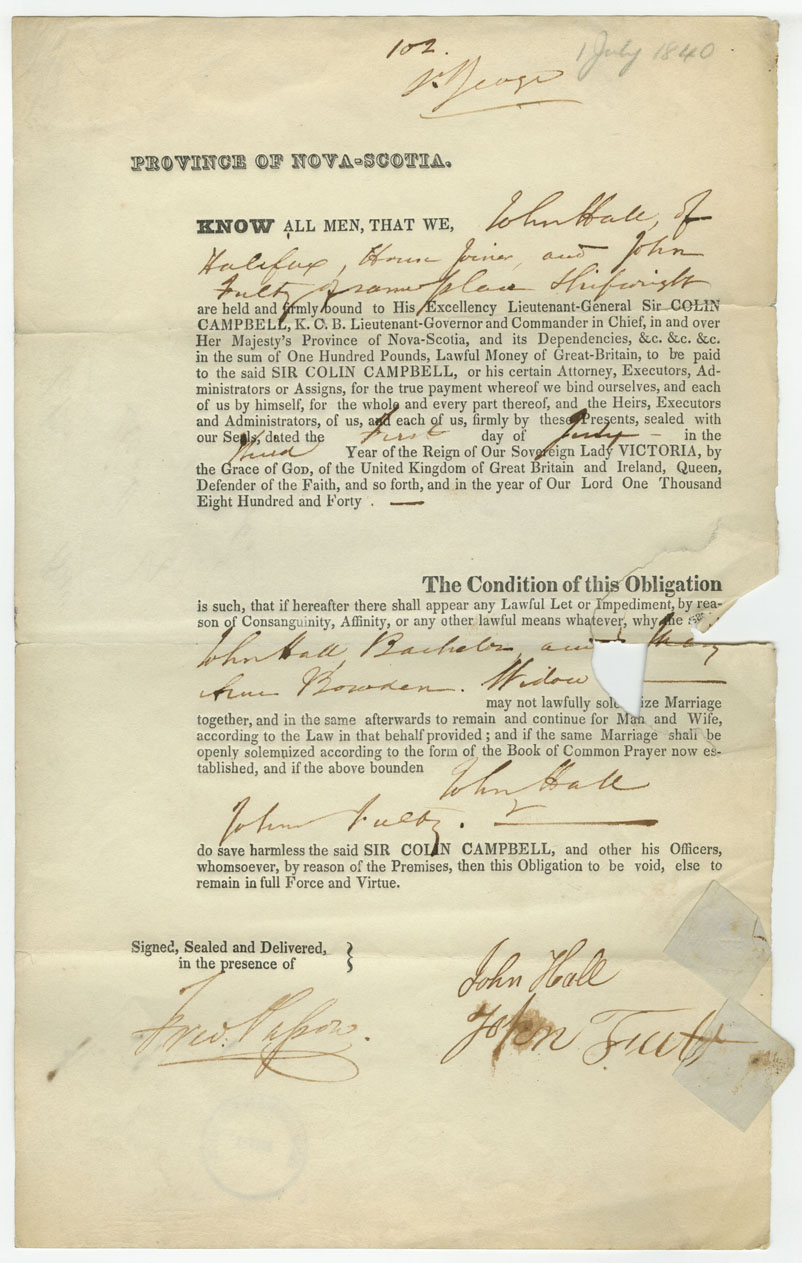 102.
1 July 1840
St George
PROVINCE OF NOVA-SCOTIA.
KNOW ALL MEN, THAT WE, John Hall, of
Halifax, House Joiner, and John
Fultz of same place Shipwright
are held and firmly bound to His Excellency Lieutenant-General Sir COLIN
CAMPBELL, K. C. B. Lieutenant-Governor and Commander in Chief, in and over
Her Majesty's Province of Nova-Scotia, and its Dependencies, &c. &c. &c.
in the sum of One Hundred Pounds, Lawful Money of Great-Britain, to be paid
to the said SIR COLIN CAMPBELL, or his certain Attorney, Executors, Ad-
ministrators or Assigns, for the true payment whereof we bind ourselves, and each
of us by himself, for the whole and every part thereof, and the Heirs, Executors
and Administrators, of us, and each of us, firmly by these Presents, sealed with
our Seals, dated the First day of July – in the
Third Year of the Reign of Our Sovereign Lady VICTORIA, by
the Grace of God, of the United Kingdom of Great Britain and Ireland, Queen,
Defender of the Faith, and so forth, and in the year of Our Lord One Thousand
Eight Hundred and Forty . —
The Condition of this Obligation
is such, that if hereafter there shall appear any Lawful Let or Impediment, by rea-
son of Consanguinity, Affinity, or any other lawful means whatever, why the
John Hall, Bachelor, and Mary
Ann Bowden. Widow —
may not lawfully solemnize Marriage
together, and in the same afterwards to remain and continue for Man and Wife,
according to the Law in that behalf provided ; and if the same Marriage shall be
openly solemnized according to the form of the Book of Common Prayer now es-
tablished, and if the above bounden John Hall
John Fultz. —
do save harmless the said SIR COLIN CAMPBELL, and other his Officers,
whomsoever, by reason of the Premises, then this Obligation to be void, else to
remain in full Force and Virtue.
Signed, Sealed and Delivered,
in the presence of
John Hall
John Fultz